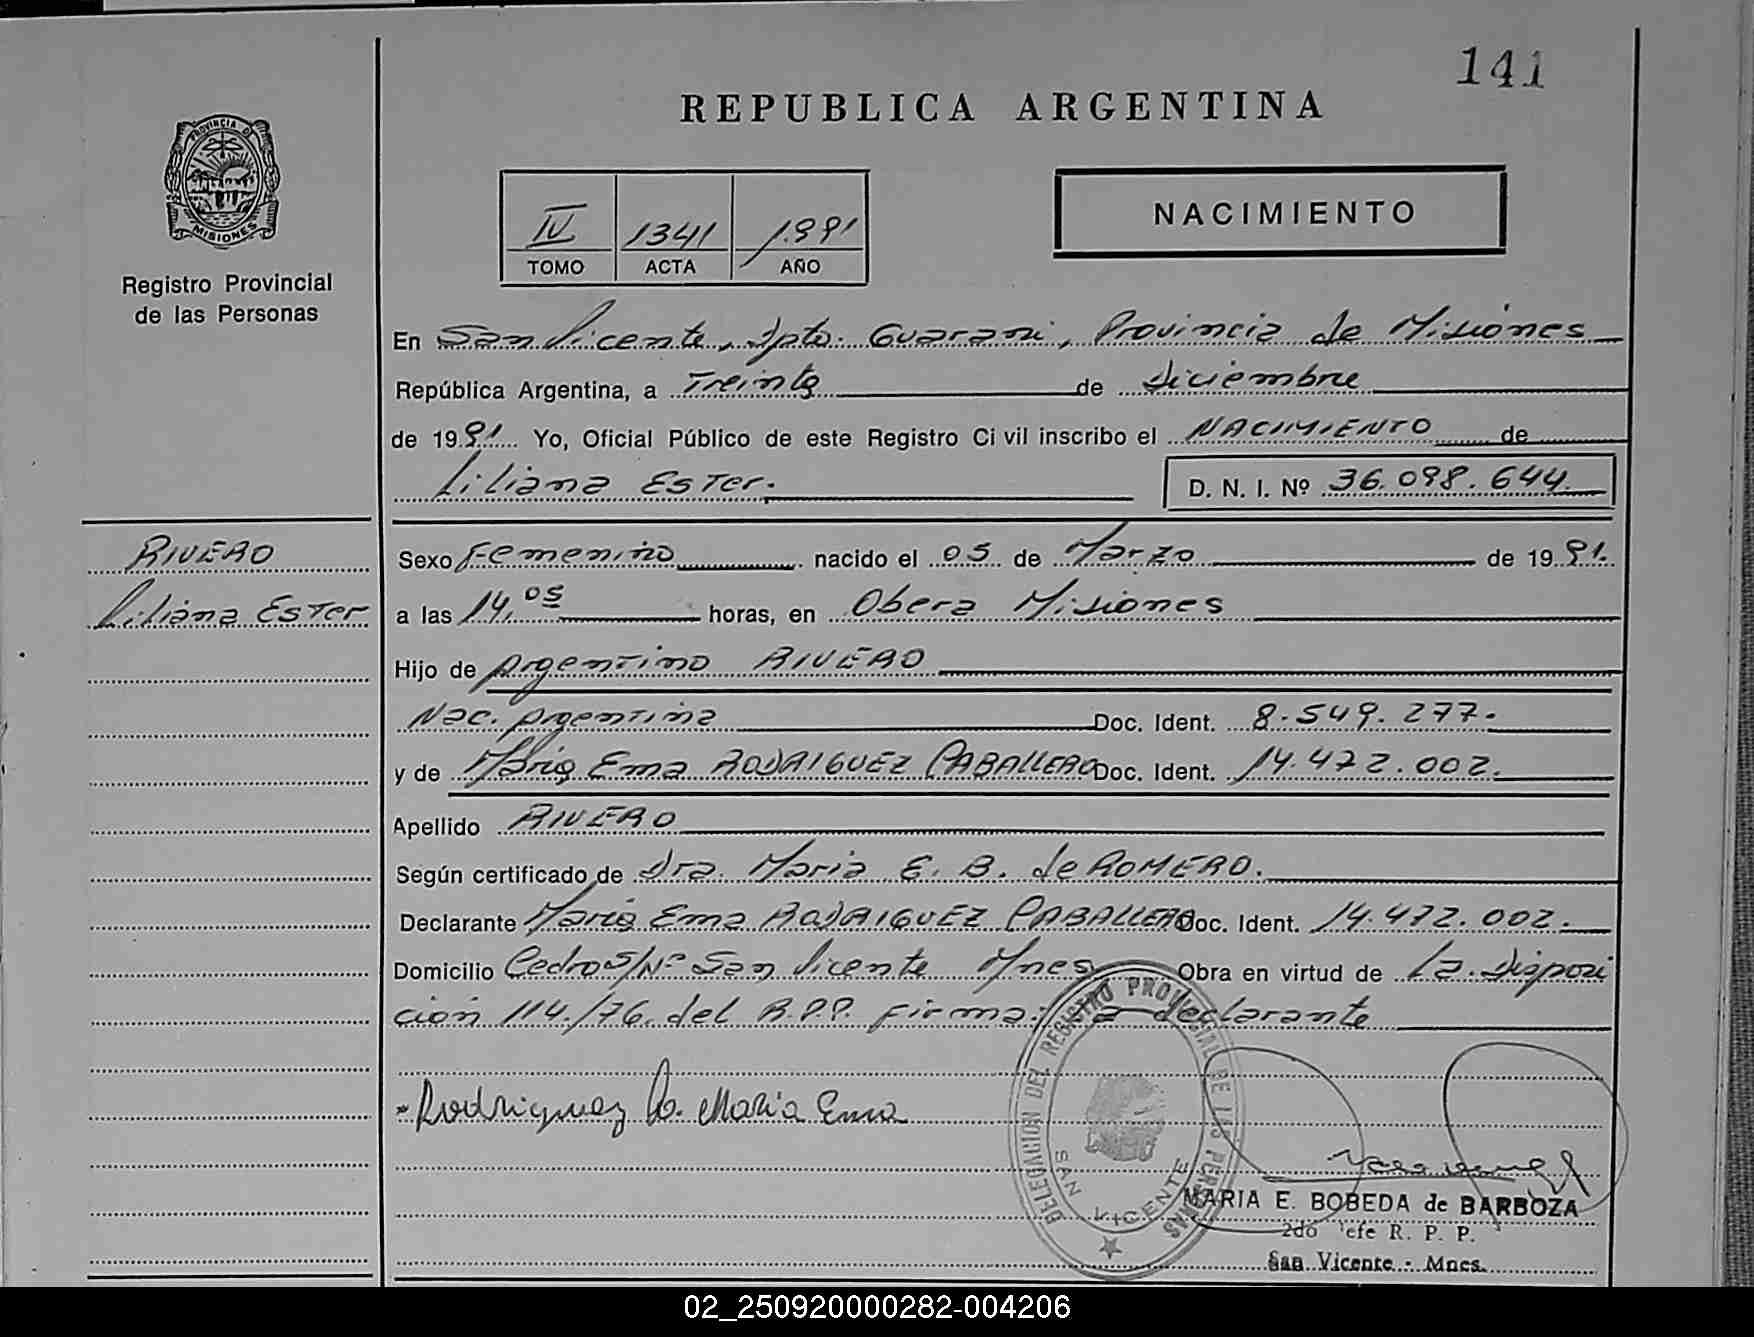 141
REPUBLICA ARGENTINA
PROVINCIA DE
MISIONES
Registro Provincial
de las Personas
IV 1341 1991
TOMO ACTA AÑO
NACIMIENTO
En San Vicente, Dpto. Guarani, Provincia de Misiones
República Argentina, a Treinta de Diciembre
de 1991 Yo, Oficial Público de este Registro Civil inscribo el NACIMIENTO de
Liliana Ester.
D. N. I. Nº 36.098.644
RIVERO
Liliana Ester
Sexo Femenino nacido el 05 de Marzo de 1991.
a las 14,05 horas, en Obera Misiones
Hijo de Argentino RIVERO
Nac. Argentina Doc. Ident. 8.549.277.
y de Maria Ema RODRIGUEZ CABALLERO Doc. Ident. 14.472.002.
Apellido RIVERO
Según certificado de Dra. Maria E. B. de ROMERO.
Declarante Maria Ema RODRIGUEZ CABALLERO Doc. Ident. 14.472.002.
Domicilio Cedro S/Nº San Vicente Mnes Obra en virtud de La Disposi
ción 114./76. del R.P.P. Firma: La declarante
Rodriguez C. Maria Ema
DELEGACION DEL REGISTRO PROVINCIAL DE LAS PERSONAS
SAN VICENTE
MARIA E. BOBEDA de BARBOZA
2do Jefe R. P. P.
San Vicente - Mnes.
02_250920000282-004206